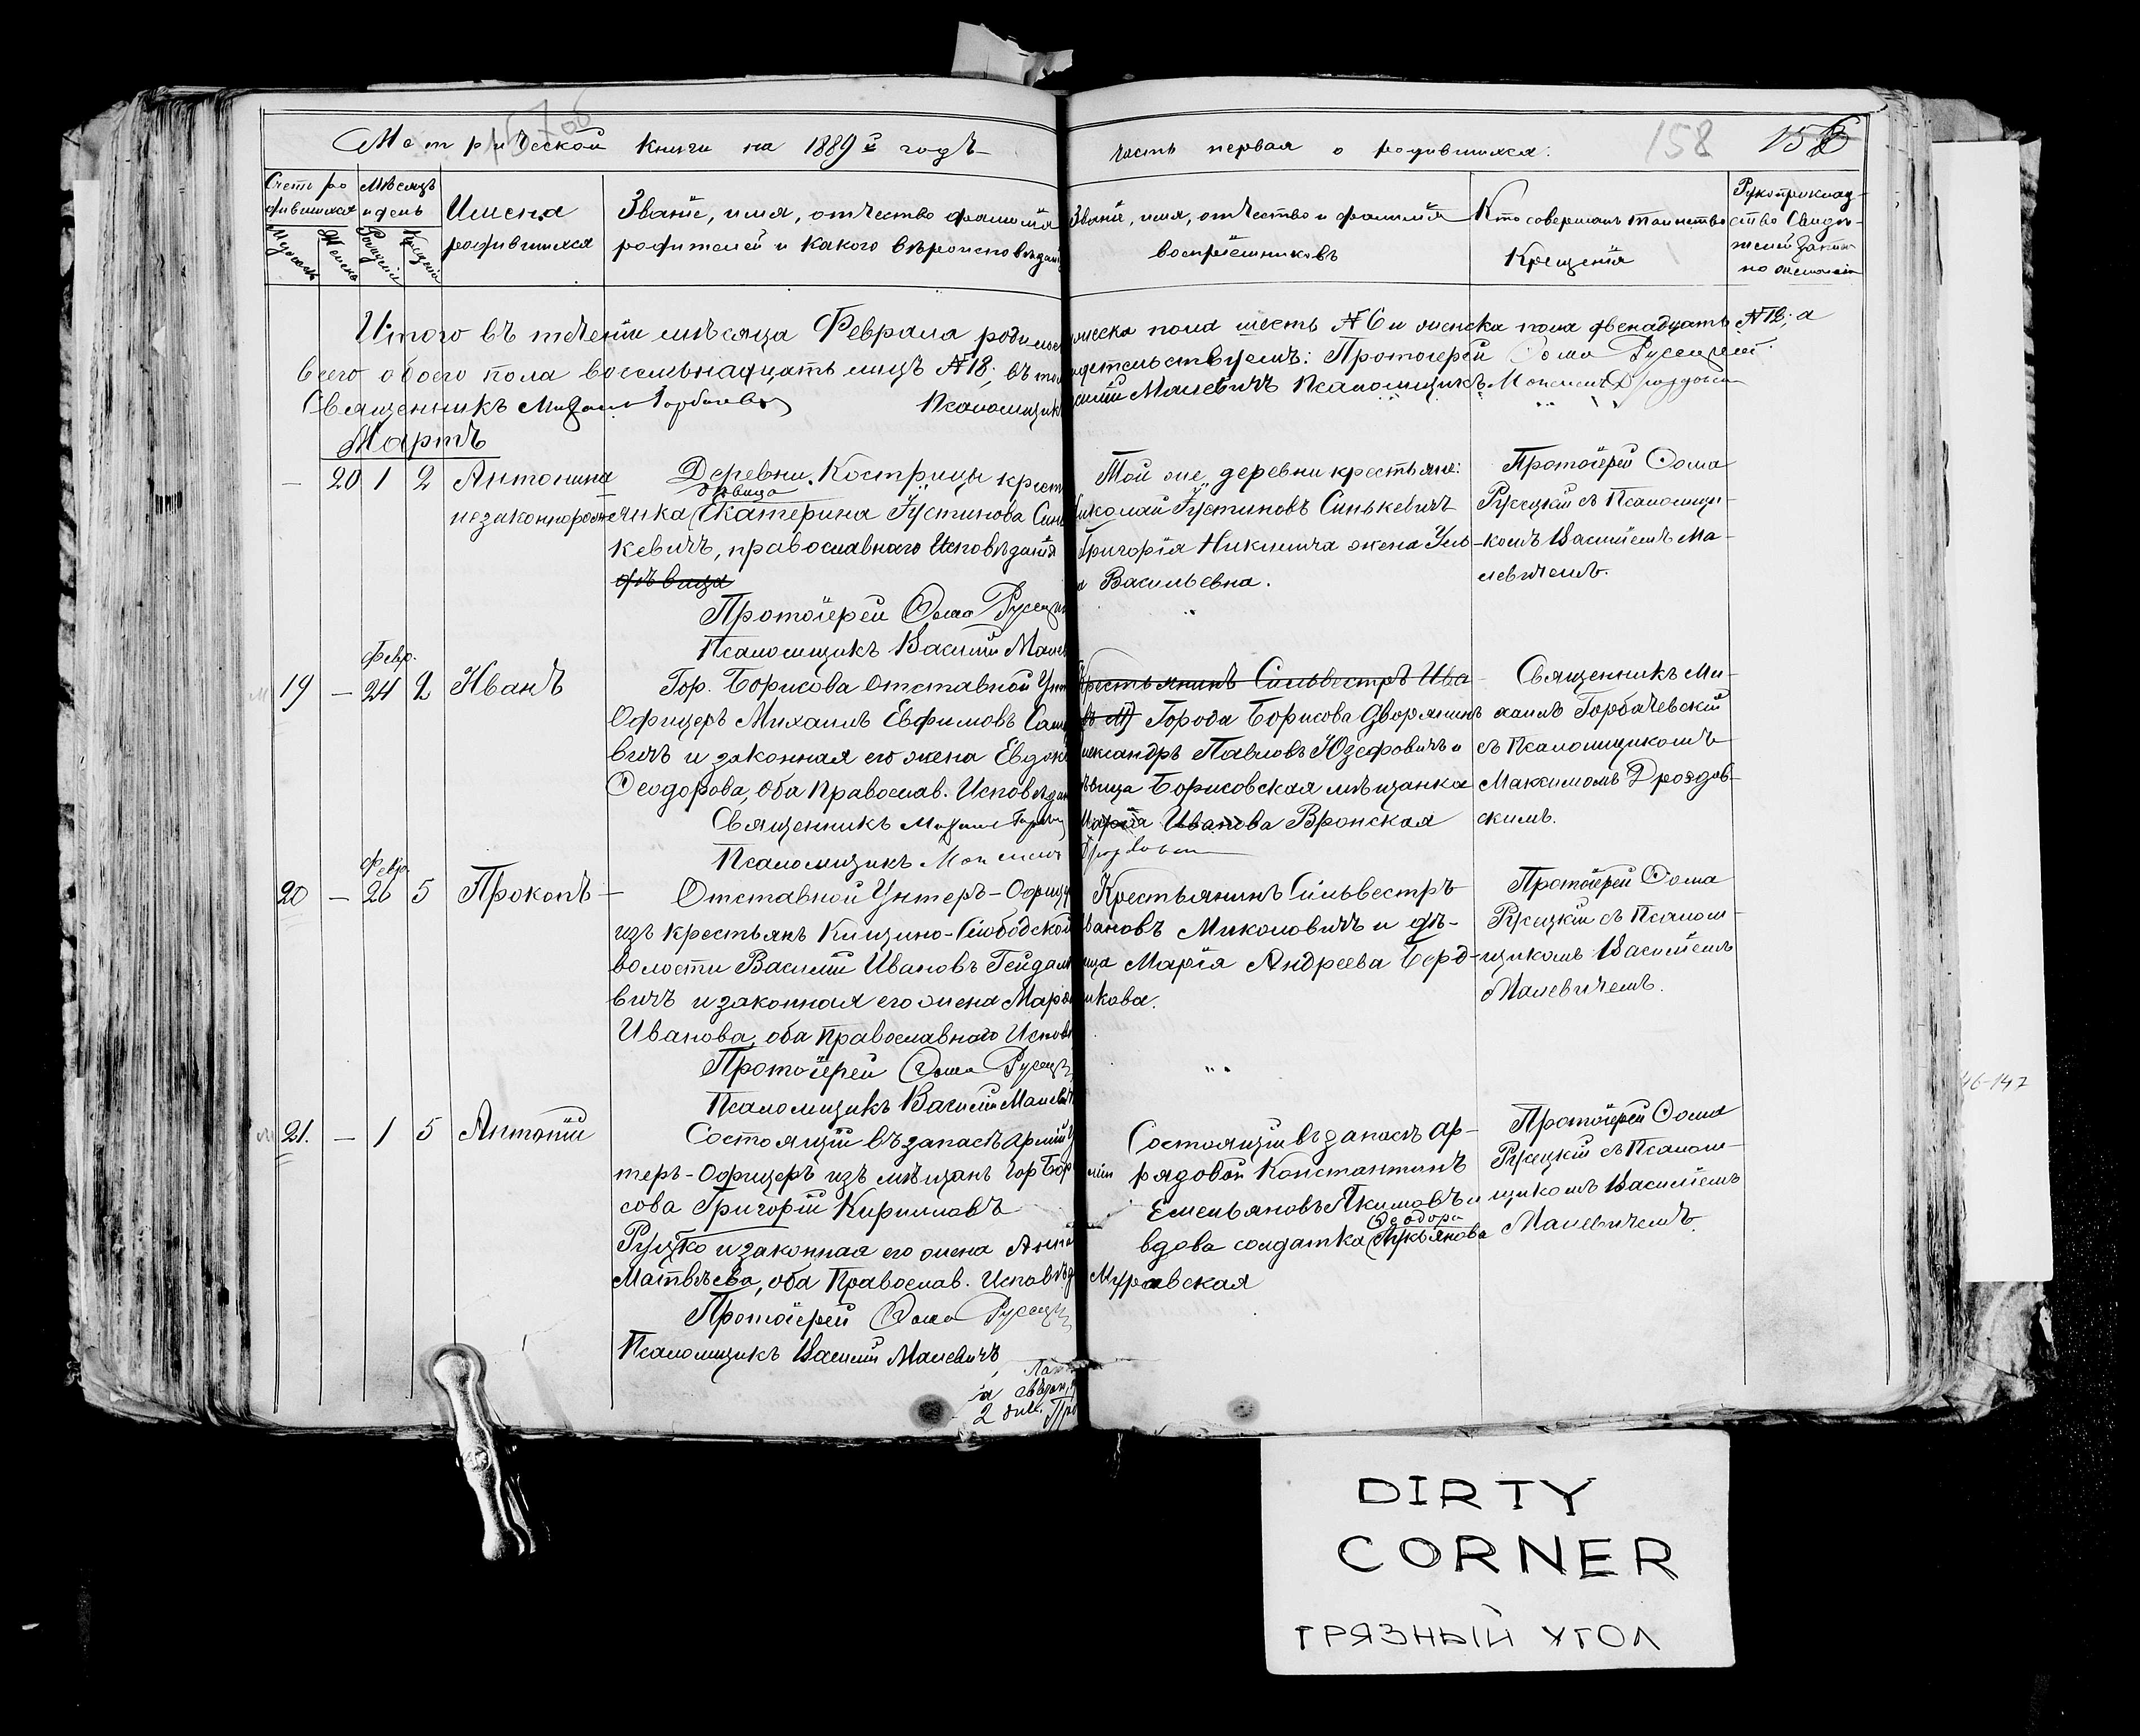 Метрической книги на 1889й годъ
часть первая о родившихся.
158
Счетъ ро
дившихся
Мужеск
Женск
Мѣсяцъ
и день
Рожденiя
Крещенiя
Имена
родившихся
Званiе, имя, отчество фамилiя
родителей и какого вѣроисповѣданi
Званiе, имя, отчество и фамилiя
воспрiемниковъ
Кто совершалъ таинство
Крещенiя
Рукоприклад-
ство Свидѣ-
телей записи
по желанiю
Итого въ теченiи мѣсяца Февраля родилось мужеска пола шесть №6 и женска пола двенадцать №12; а
всего обоего пола восемьнадцать лицъ №18; въ томъ свидѣтельствуемъ: Протоiерей Ѳома Русецкiй.
Священникъ Михаилъ Горбачевскiй Псаломщикъ Василiй Малевичъ Псаломщикъ Максимъ Дроздовскiй
Мартъ
— 20 1 2 Антонина
незаконнорож-
Деревни Кострицы крест
дѣвица
янка Екатерина Iустинова Синь
кевичъ, православнаго Исповѣданiя
дѣвица
Протоiерей Ѳома Русецкiй
Псаломщикъ Василiй Малев
Той же деревни крестьяне:
Николай Iустиновъ Синькевичъ
Григорiя Никитича жена Уль-
я Васильевна.
Протоiерей Ѳома
Русецкiй съ Псаломщи-
комъ Василiемъ Ма-
левичемъ.
Февр.
19 — 24 2 Иванъ
Гор. Борисова Отставной Унт
Офицеръ Михаилъ Евфимовъ Саш
вичъ и законная его жена Евдок
Ѳеодорова, оба Православ. Исповѣдан
Священникъ Михаилъ Горбач
Псаломщикъ Максимъ Дроздовскiй
Крестьянинъ Сильвестръ Ива
въ М) Города Борисова Дворянинъ
Александръ Павловъ Юзефовичъ и
дѣвица Борисовская мѣщанка
Марiя Иванова Вронская
Священникъ Ми-
хаилъ Горбачевскiй
съ Псаломщикомъ
Максимомъ Дроздов-
скимъ.
Февр.
20 — 26 5 Прокопъ —
Отставной Унтеръ-Офице
изъ крестьянъ Кищино-Слободской
волости Василiй Ивановъ Гайдале
вичъ и законная его жена Мар
Иванова, оба православнаго Испов
Протоiерей Ѳома Русецк
Псаломщикъ Василiй Малевич
Крестьянинъ Сильвестръ
Ивановъ Миколовичъ и дѣ-
вица Марiя Андреева Берд-
никова.
Протоiерей Ѳома
Русецкiй съ Псалом-
щикомъ Василiемъ
Малевичемъ.
21. — 1 5 Антонiй
Состоящiй въ запасѣ армiи У
теръ-Офицеръ изъ мѣщанъ гор Бор
сова Григорiй Кирилловъ
Руцко и законная его жена Анна
Матвѣева, оба Православ. Исповѣд
Протоiерей Ѳома Русецк
Псаломщикъ Василiй Малевичъ
Состоящiй въ запасѣ ар-
мiи рядовой Константинъ
Емельяновъ Якимовъ и
Ѳеодора
вдова солдатка Лукьянова
Муравская
Протоiерей Ѳома
Русецкiй съ Псалом-
щикомъ Василiемъ
Малевичемъ.
46-147
DIRTY
CORNER
ГРЯЗНЫЙ УГОЛ